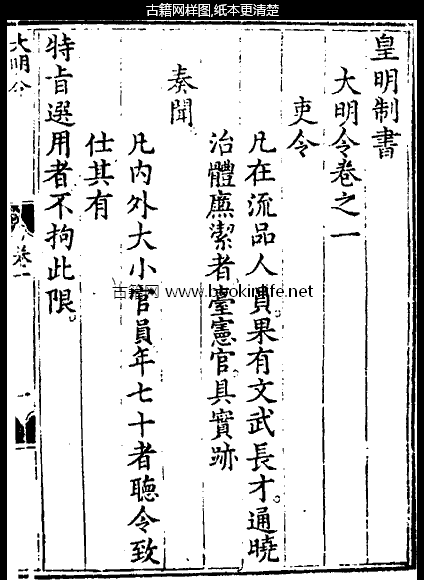 古籍网样图,纸本更清楚
皇明制書
大明令卷之一
吏令
凡在流品人員果有文武長才通曉
治體廉潔者臺憲官具實跡
奏聞
凡內外大小官員年七十者聽令致
仕其有
特旨選用者不拘此限
大明令
卷一
一
古籍网 www.bookinlife.net